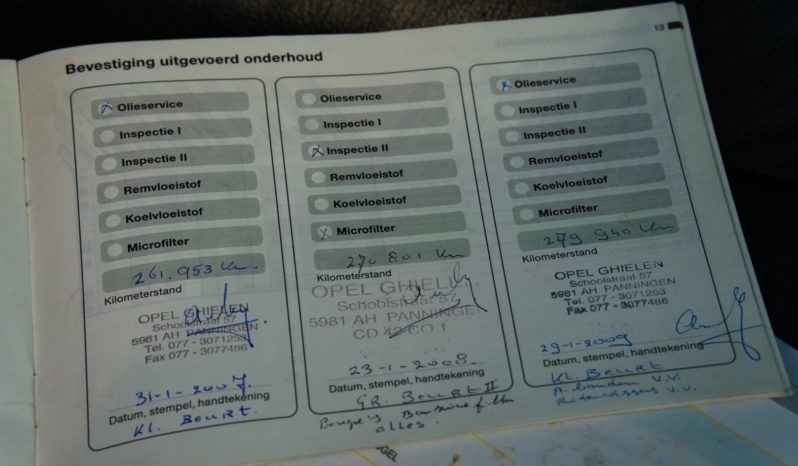 13
Bevestiging uitgevoerd onderhoud
Olieservice
Inspectie I
Inspectie II
Remvloeistof
Koelvloeistof
Microfilter
261.953 Km.
Kilometerstand
OPEL GHIELEN
Schoolstraat 57
5981 AH PANNINGEN
Tel. 077 - 3071253
Fax 077 - 3077486
31-1-2007.
Datum, stempel, handtekening
KL. BEURT.
Olieservice
Inspectie I
Inspectie II
Remvloeistof
Koelvloeistof
Microfilter
270 801 Km
Kilometerstand
OPEL GHIELEN
Schoolstraat 57
5981 AH PANNINGEN
CD 42 CO 1
23-1-2008
Datum, stempel, handtekening
GR. BEURT II
Bougie's Benzine filter
alles.
Olieservice
Inspectie I
Inspectie II
Remvloeistof
Koelvloeistof
Microfilter
279 940 Km
Kilometerstand
OPEL GHIELEN
Schoolstraat 57
5981 AH PANNINGEN
Tel. 077 - 3071253
Fax 077 - 3077486
29-1-2009
Datum, stempel, handtekening
KL. BEURT
A. banden V.V.
Ruitenwissers V.V.